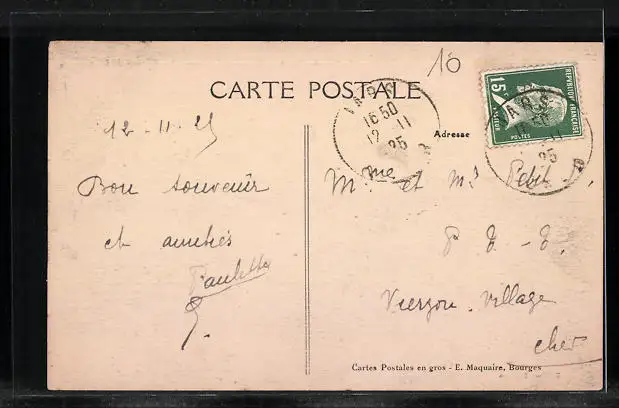 10
CARTE POSTALE
15c
REPUBLIQUE FRANÇAISE
PASTEUR
POSTES
16 50
12 - 11
25
Adresse
12-11-25
Bon souvenir
et amitiés
Paulette
Mme et Mr Petit
P. T. T.
Vierzon-Village
Cher
Cartes Postales en gros - E. Maquaire, Bourges